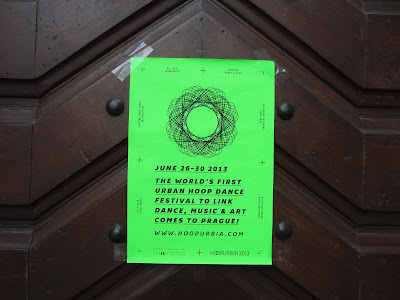 JUNE 26-30 2013
THE WORLD'S FIRST
URBAN HOOP DANCE
FESTIVAL TO LINK
DANCE, MUSIC & ART
COMES TO PRAGUE!
WWW.HOOPURBIA.COM
HOOPURBIA 2013